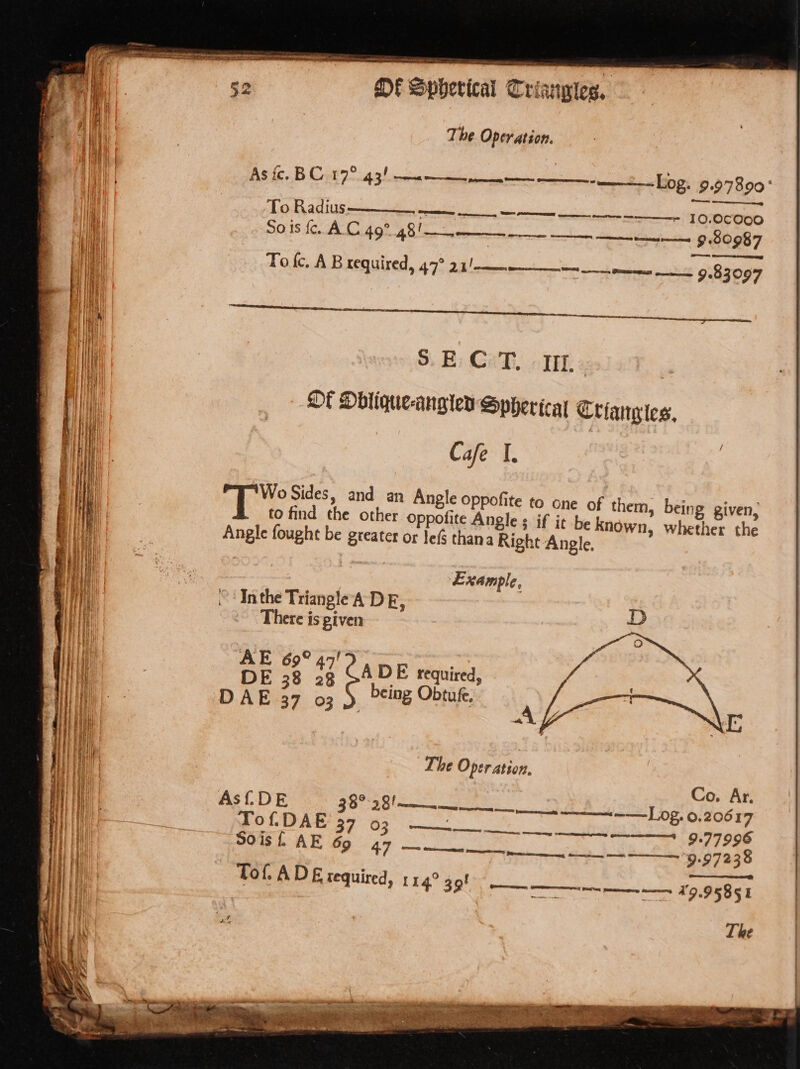 52 Of Spherical Triangles.
The Operation.
As ſc. B C 17° 43′ ——— Log. 9.97890
To Radius ——— 10.00000
So is ſc. A C 49° 48′ ——— 9.80987
To ſc. A B required, 47° 21′ ——— 9.83097
S E C T. III.
Of Oblique-angled Spherical Triangles.
Caſe I.
TWo Sides, and an Angle oppoſite to one of them, being given,
to find the other oppoſite Angle; if it be known, whether the
Angle ſought be greater or leſs than a Right Angle.
Example,
In the Triangle A D E,
There is given
AE 69° 47′
DE 38 28 } A D E required,
D A E 37 03 being Obtuſe.
D
A
E
The Operation.
Co. Ar.
As ſ. D E 38° 28′ ——— Log. 0.20617
To ſ. D A E 37 03 ——— 9.77996
So is ſ. A E 69 47 ——— 9.97238
To ſ. A D E required, 114° 39′ ——— 19.95851
The